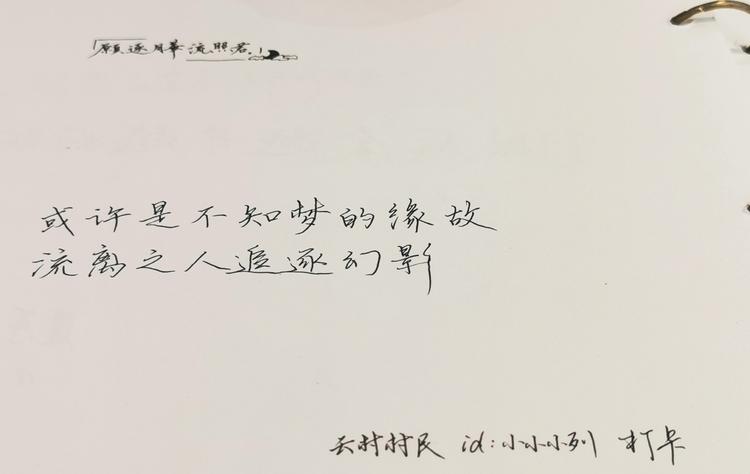 願逐月華流照君!
或许是不知梦的缘故
流离之人追逐幻影
云村村民 id:小小小列 打卡